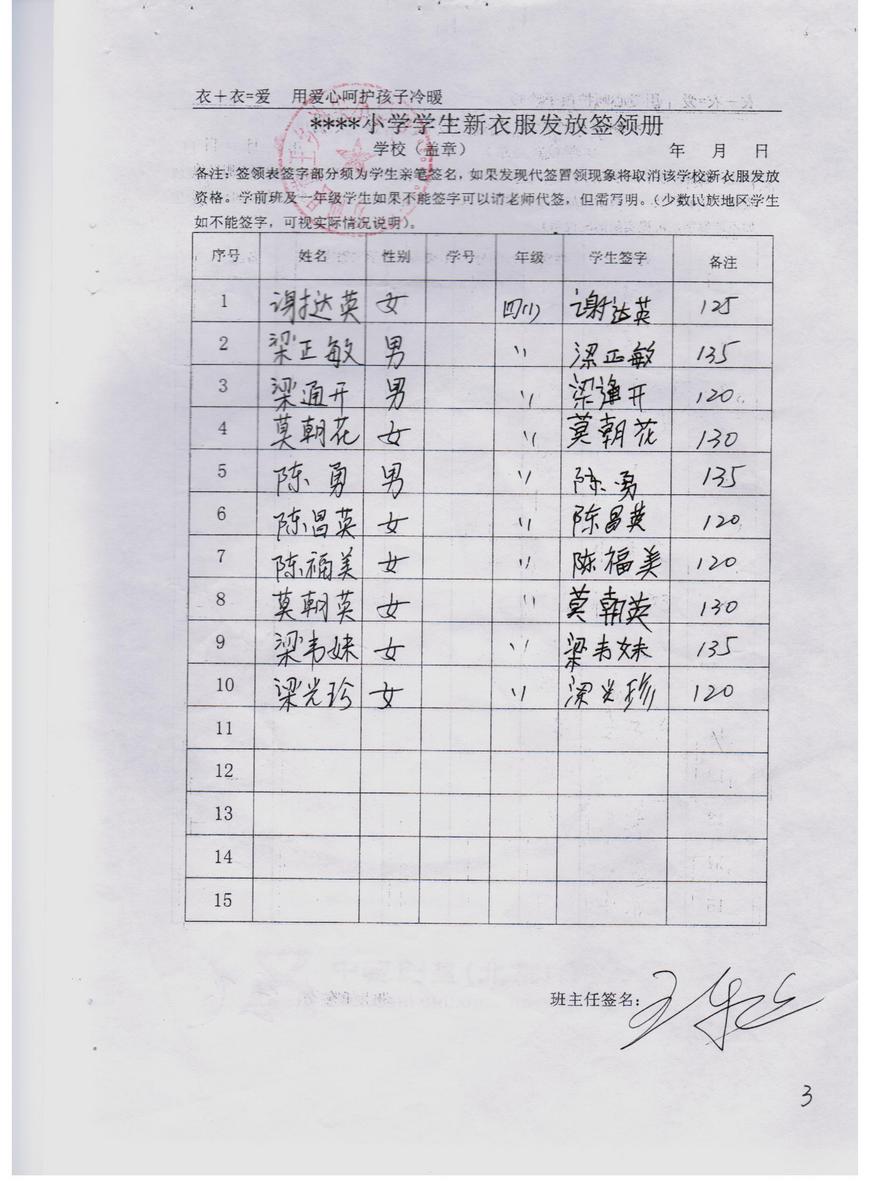 衣＋衣=爱　用爱心呵护孩子冷暖
****小学学生新衣服发放签领册
学校（盖章）　年　月　日
备注：签领表签字部分须为学生亲笔签名，如果发现代签冒领现象将取消该学校新衣服发放
资格。学前班及一年级学生如果不能签字可以请老师代签，但需写明。（少数民族地区学生
如不能签字，可视实际情况说明）。
序号　姓名　性别　学号　年级　学生签字　备注
1　谢达英　女　四(1)　谢达英　125
2　梁正敏　男　〃　梁正敏　135
3　梁通开　男　〃　梁通开　120
4　莫朝花　女　〃　莫朝花　130
5　陈勇　男　〃　陈勇　135
6　陈昌英　女　〃　陈昌英　120
7　陈福美　女　〃　陈福美　120
8　莫朝英　女　〃　莫朝英　130
9　梁韦妹　女　〃　梁韦妹　135
10　梁光珍　女　〃　梁光珍　120
11
12
13
14
15
班主任签名：
3